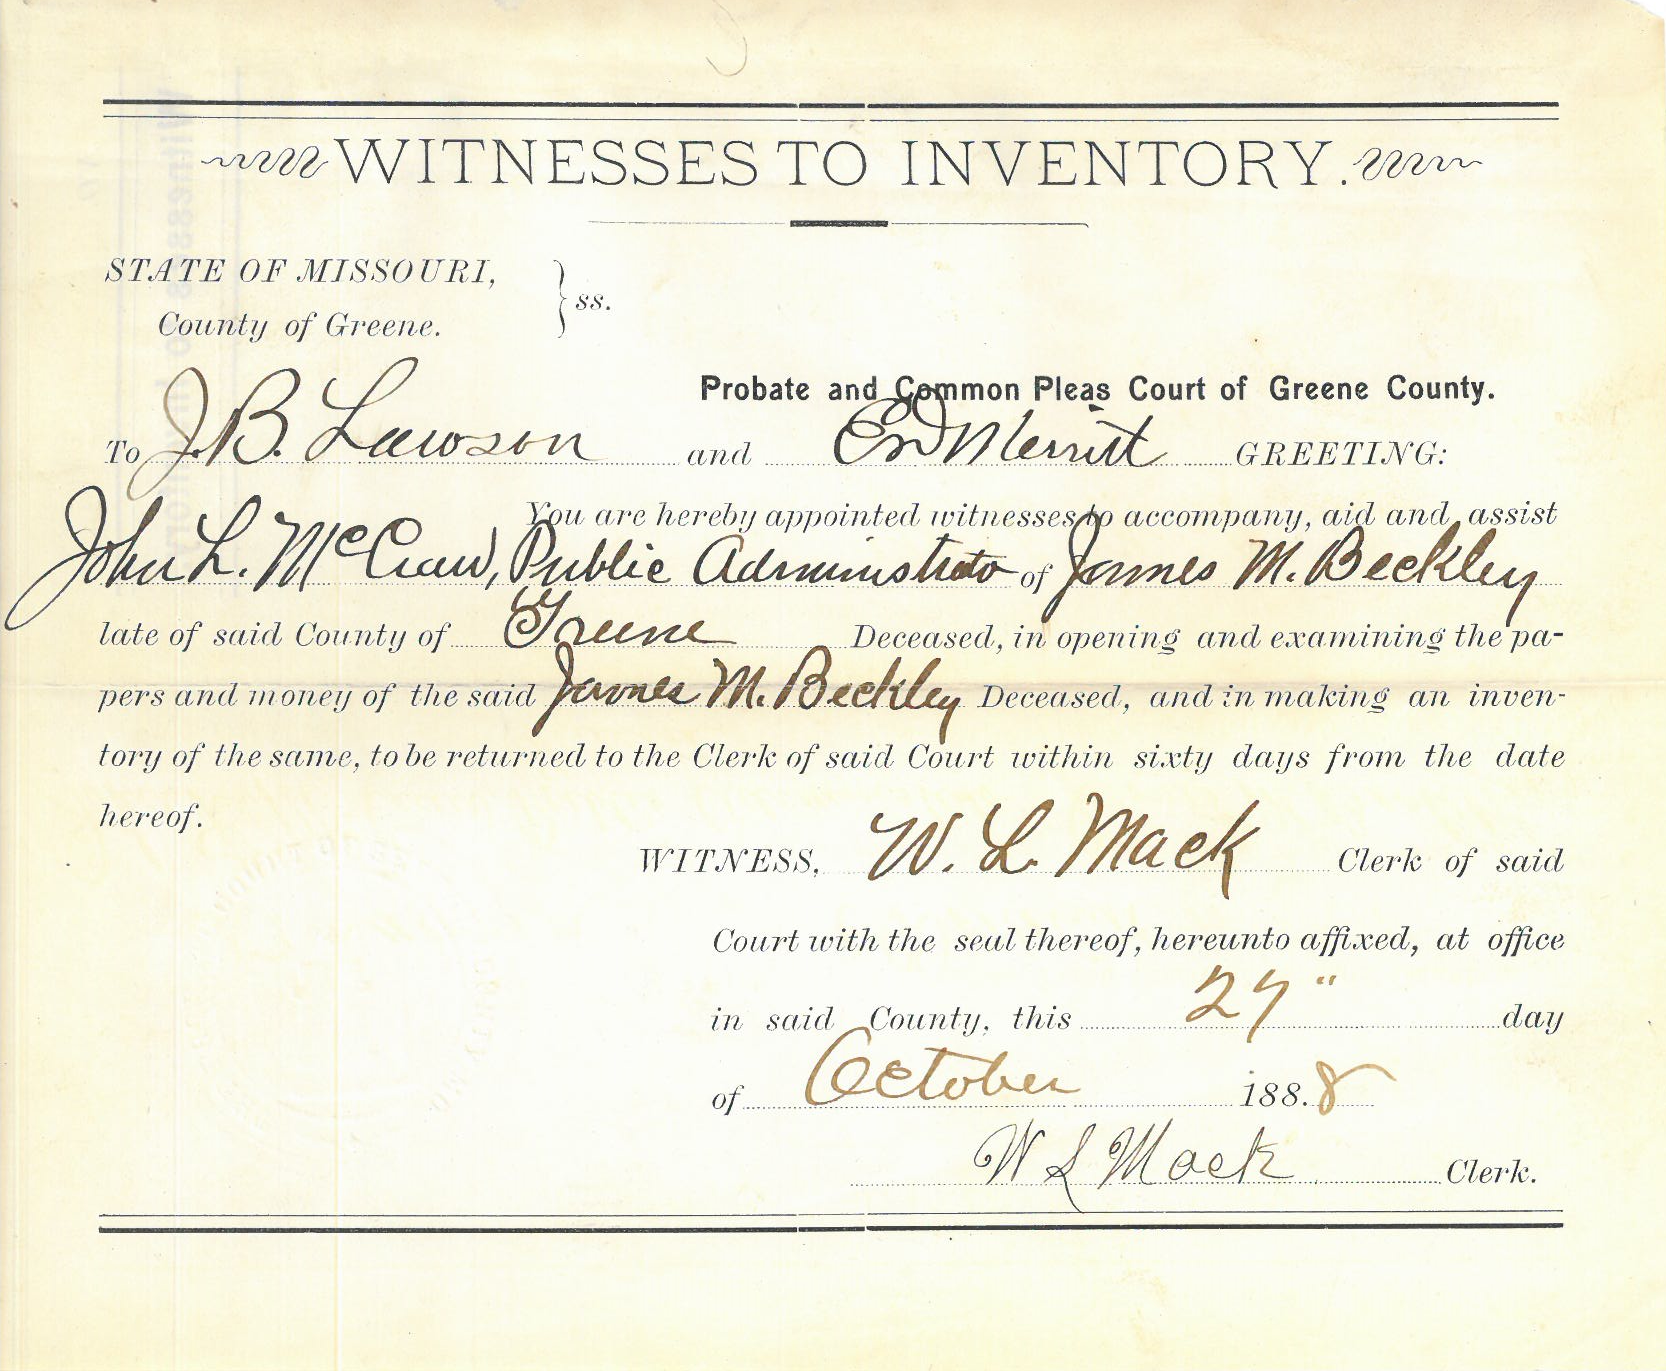 WITNESSES TO INVENTORY.
STATE OF MISSOURI,
County of Greene. } ss.
Probate and Common Pleas Court of Greene County.
To J. B. Lawson and Ed Merritt GREETING:
You are hereby appointed witnesses to accompany, aid and assist
John L. McCraw, Public Administrato of James M. Beckley
late of said County of Greene Deceased, in opening and examining the pa-
pers and money of the said James M. Beckley Deceased, and in making an inven-
tory of the same, to be returned to the Clerk of said Court within sixty days from the date
hereof.
WITNESS, W. L. Mack Clerk of said
Court with the seal thereof, hereunto affixed, at office
in said County, this 27" day
of October 188.8
W L Mack Clerk.